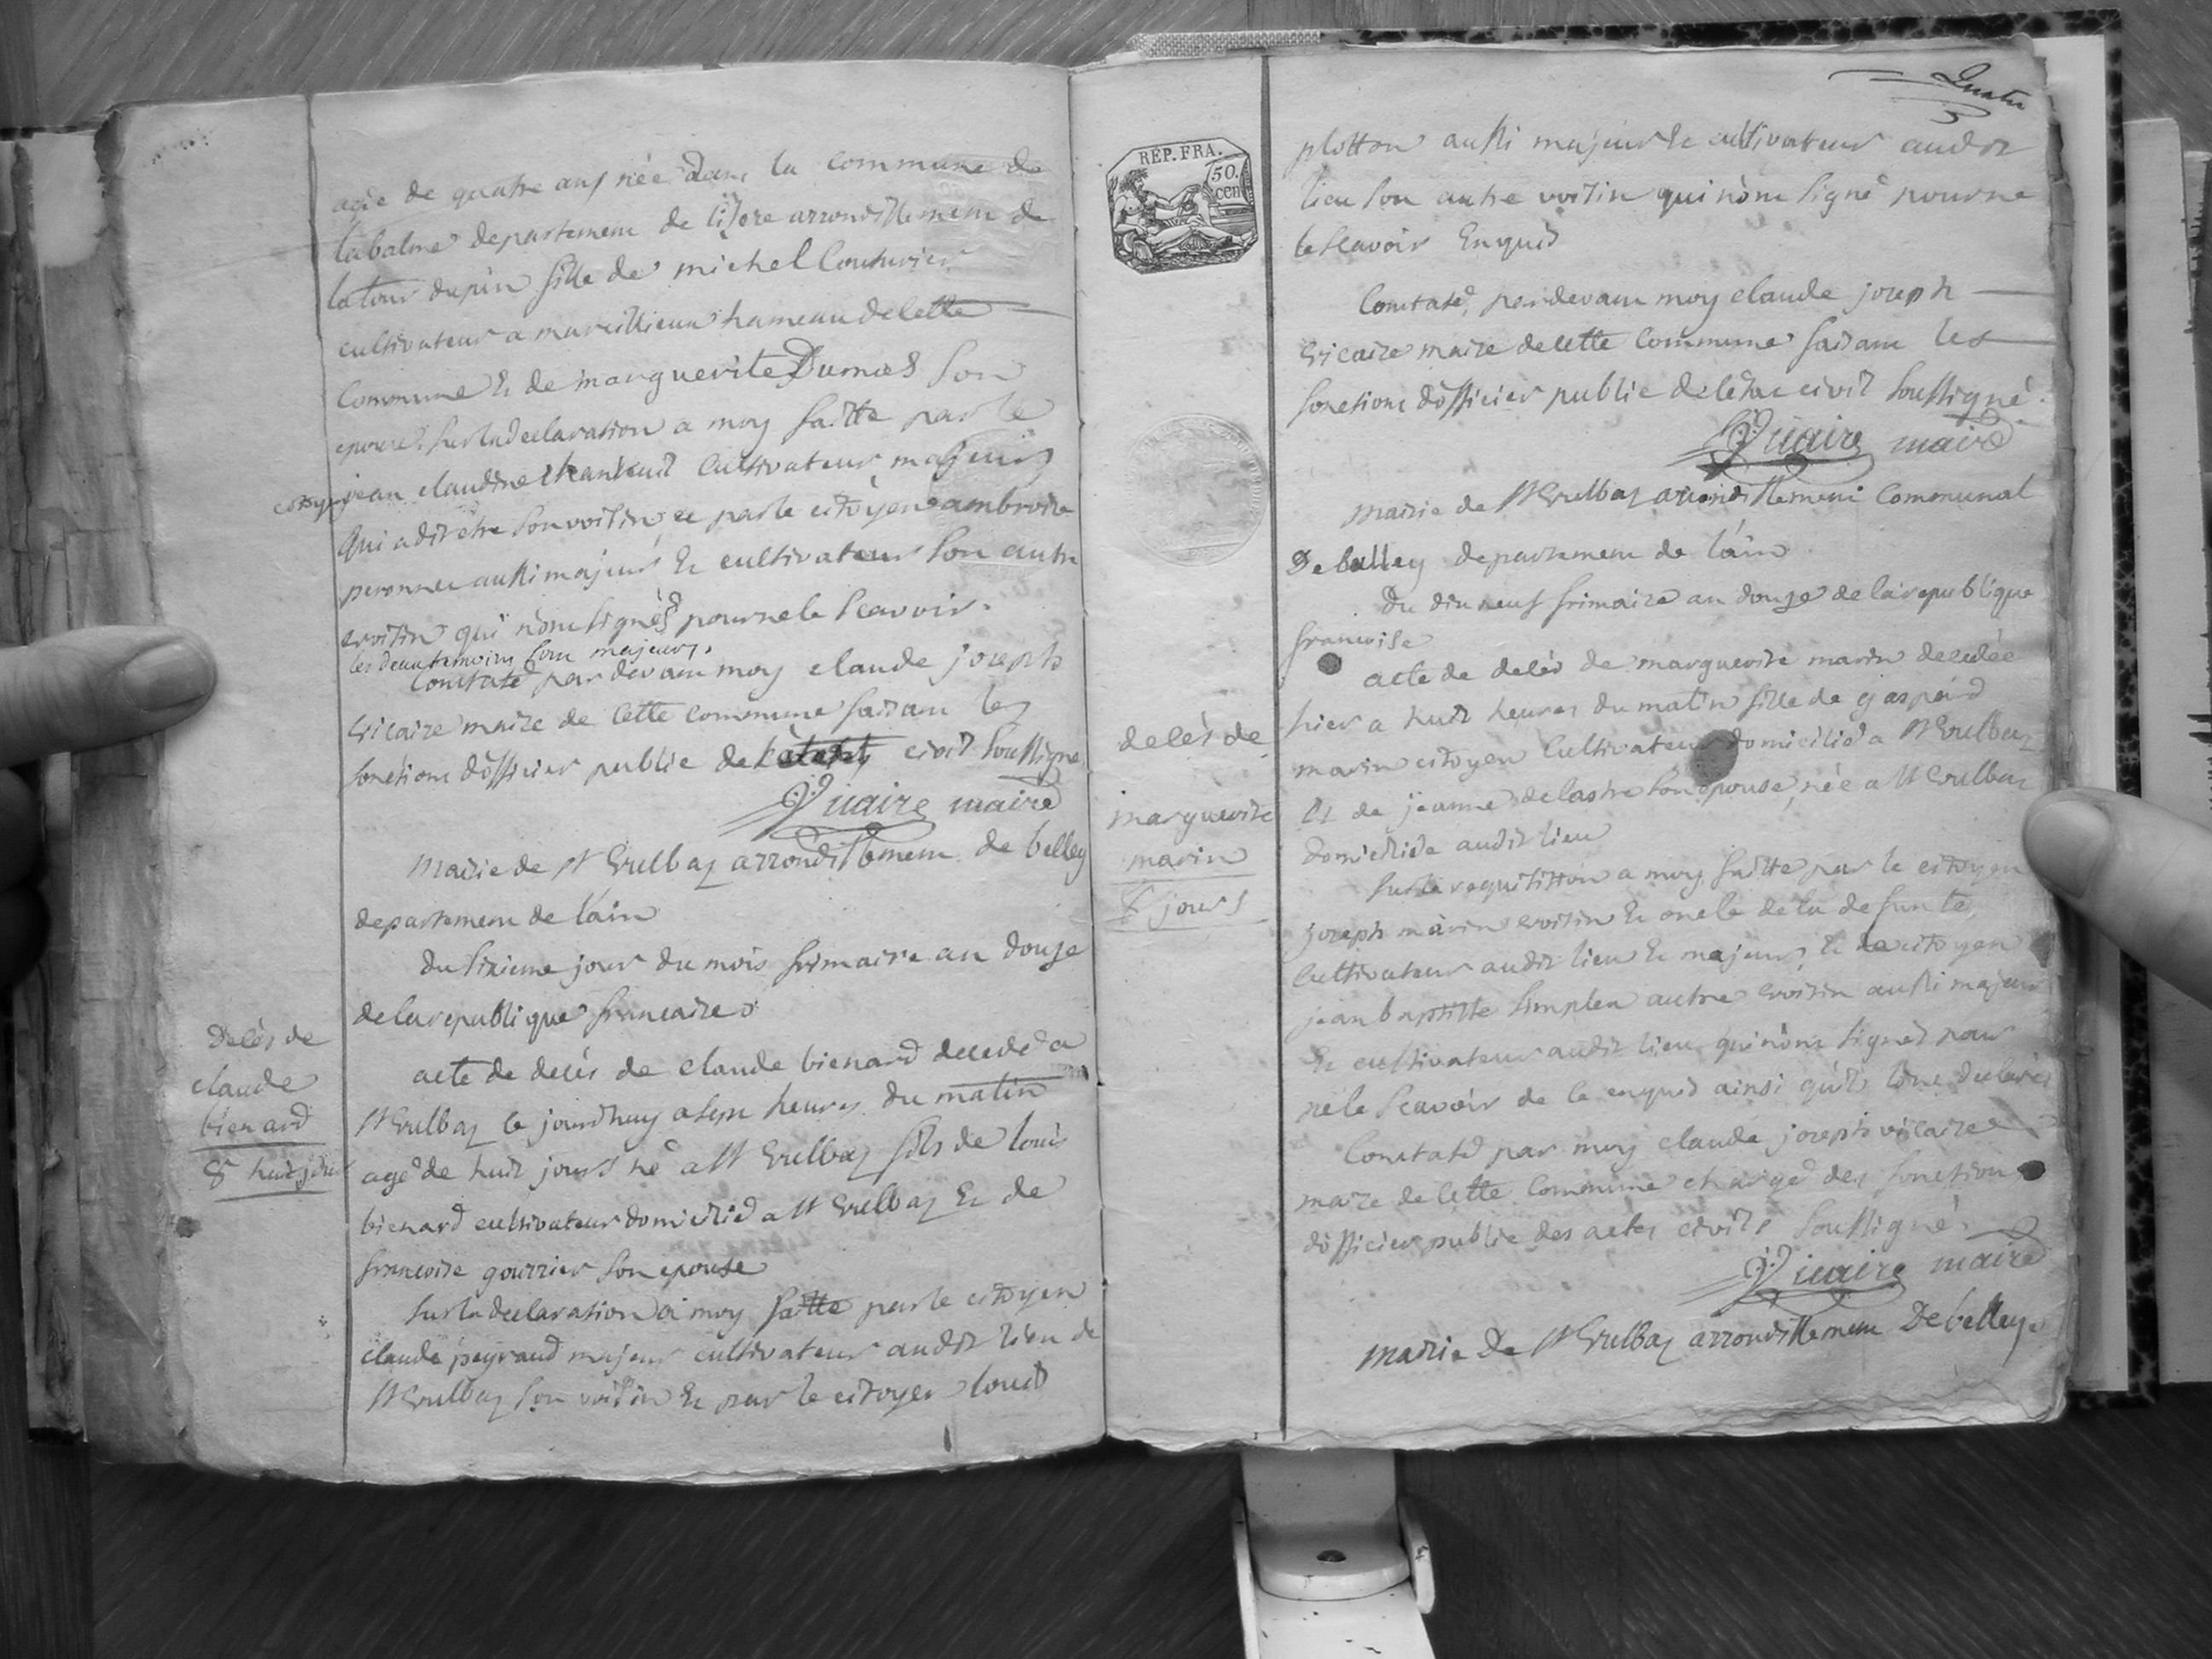 agée de quatre ans née dans la commune de
labalme departement de lisere arrondissement de
latour dupin fille de michel Couturier
cultivateur a marcillieux hameau de cette
Commune & de marguerite Dumas son
epouse. sur la declaration a moy faitte par le
citoyen jean claudine cultivateur majeur
qui a dit etre son voisin, et par le citoyen ambroise
peronnet aussi majeur & cultivateur son autre
voisin qui nont signés pour ne le scavoir.
les deux temoins sont majeurs.
Constaté par devant moy claude joseph
vicaire maire de cette commune faisant les
fonctions dofficier public de civil soussigné
Vicaire maire
Mairie de St Vulbaz arrondissement de belley
departement de lain
Du sixieme jour du mois frimaire an douze
de la republique francaise
Decés de
claude
bienard
8 huit jours
acte de decés de claude bienard decedé a
St Vulbaz le jourdhuy a sept heures du matin
agé de huit jours né a St Vulbaz fils de louis
bienard cultivateur domicilié a St Vulbaz & de
francoise gourrier son epouse
sur la declaration a moy faitte par le citoyen
claude peyraud majeur cultivateur audit lieu de
St Vulbaz son voisin & par le citoyen louis
Quatre
REP. FRA.
50.
cen
plotton aussi majeur & cultivateur audit
lieu son autre voisin qui nont signé pour ne
le scavoir Enquis
Constaté, par devant moy claude joseph
vicaire maire de cette Commune faisant les
fonctions dofficier public de letat civil soussigné.
Vicaire maire
Mairie de St Vulbaz arrondissement Communal
De belley departement de lain
Du dix neuf frimaire an douze de la republique
francoise
decés de
marguerite
marin
8 jours
acte de decés de marguerite marin decedée
hier a huit heures du matin fille de gaspard
marin citoyen Cultivateur domicilié a St Vulbaz
& de jeanne delastre son epouse, née a St Vulbaz
domiciliée audit lieu
sur la requisition a moy faitte par le citoyen
joseph marin voisin & oncle de la defunte,
cultivateur audit lieu & majeur, & le citoyen
jean baptiste simplex autre voisin aussi majeur
& cultivateur audit lieu qui nont signés pour
ne le scavoir de ce enquis ainsi quils lont declarés
Constaté par moy claude joseph vicaire
maire de cette Commune chargé des fonctions
dofficier public des actes civils soussigné.
Vicaire maire
Mairie De St Vulbaz arrondissement De belley